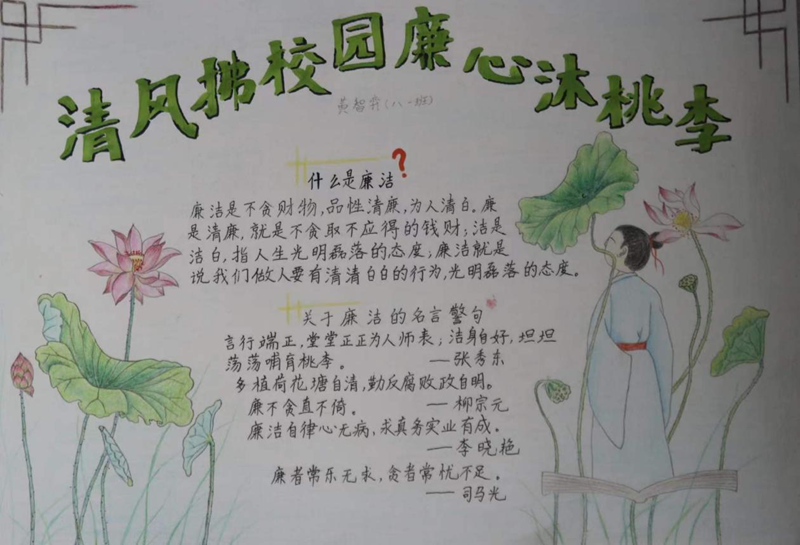 清风拂校园廉心沐桃李
(八一班)
什么是廉洁?
廉洁是不贪财物,品性清廉,为人清白。廉
是清廉,就是不贪取不应得的钱财;洁是
洁白,指人生光明磊落的态度;廉洁就是
说我们做人要有清清白白的行为,光明磊落的态度。
关于廉洁的名言警句
言行端正,堂堂正正为人师表;洁身自好,坦坦
荡荡哺育桃李。 ——张秀东
多植荷花塘自清,勤反腐败政自明。
廉不贪直不倚。 ——柳宗元
廉洁自律心无病,求真务实业有成。
——李晓艳
廉者常乐无求,贪者常忧不足。
——司马光